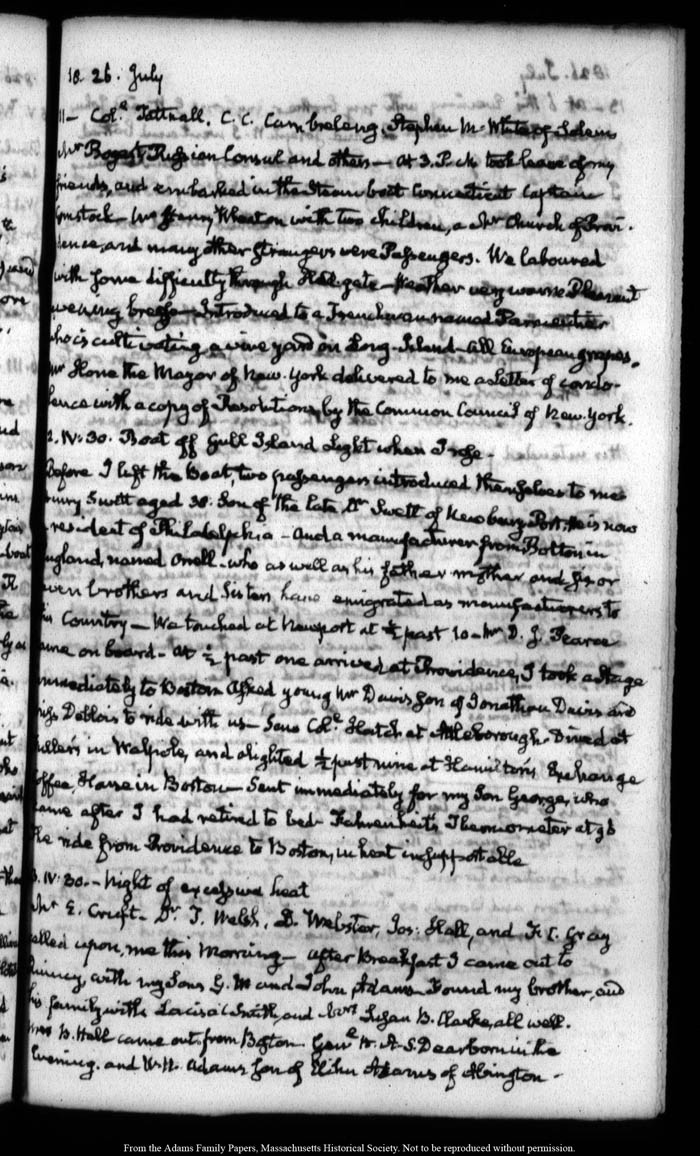 1826. July
11 — Col.e Tattnall, C. C. Cambreleng, Stephen M. White of Salem
Mr Bogert Russian Consul and others — At 3. P.M. took leave of my
friends, and embarked in the Steam boat Connecticut Captain
Comstock — Mr Henry Wheaton with two children, a Mr Church of Provi-
dence, and many other strangers were Passengers. We laboured
with some difficulty through Hellgate — Weather very warm Pleasant
evening breeze — Introduced to a Frenchman named Parmentier
who is cultivating a vine yard on Long-Island — all European grapes.
Mr Hone the Mayor of New-York delivered to me a letter of condo-
lence with a copy of Resolutions by the Common Council of New-York.
12. IV:30. Boat off Gull Island Light when I rose —
Before I left the Boat, two passengers introduced themselves to me
Swett aged 30: Son of the late Dr Swett of Newbury Port. He is now
resident of Philadelphia — and a manufacturer from Bolton in
England, named — who as well as his father mother and six or
seven brothers and Sisters have emigrated as manufacturers to
this Country — We touched at Newport at ½ past 10 — Mr D. J. Pearce
came on board — At ½ past one arrived at Providence, I took a Stage
immediately to Boston Asked young Mr Davis son of Jonathan Davis and
Miss Deblois to ride with us — Saw Col.e Hatch at Attleborough — Dined at
Fuller's in Walpole, and alighted ½ past nine at Hamilton's Exchange
Coffee House in Boston — Sent immediately for my Son George, who
came after I had retired to bed — Fahrenheit's Thermometer at 96
the ride from Providence to Boston, in heat insupportable
13. IV:30. — Night of excessive heat
Mr E. Cruft — Dr T. Welsh, D. Webster, Jos: Hall, and F. C. Gray
called upon me this Morning — After Breakfast I came out to
Quincy, with my Sons G. W. and John Adams — Found my brother, and
his family with Louisa C Smith, and Mrs Susan B. Clarke, all well.
B. Hall came out from Boston — Gen.l H. A. S. Dearborn in the
Evening. and W. H. Adams son of Elihu Adams of Abington —
From the Adams Family Papers, Massachusetts Historical Society. Not to be reproduced without permission.